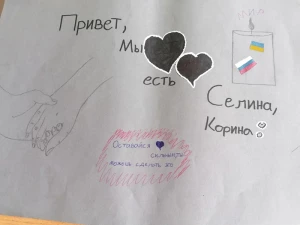 Привет,
Мы
есть
Селина,
Корина
Оставайся
сильным
можешь сделать хо